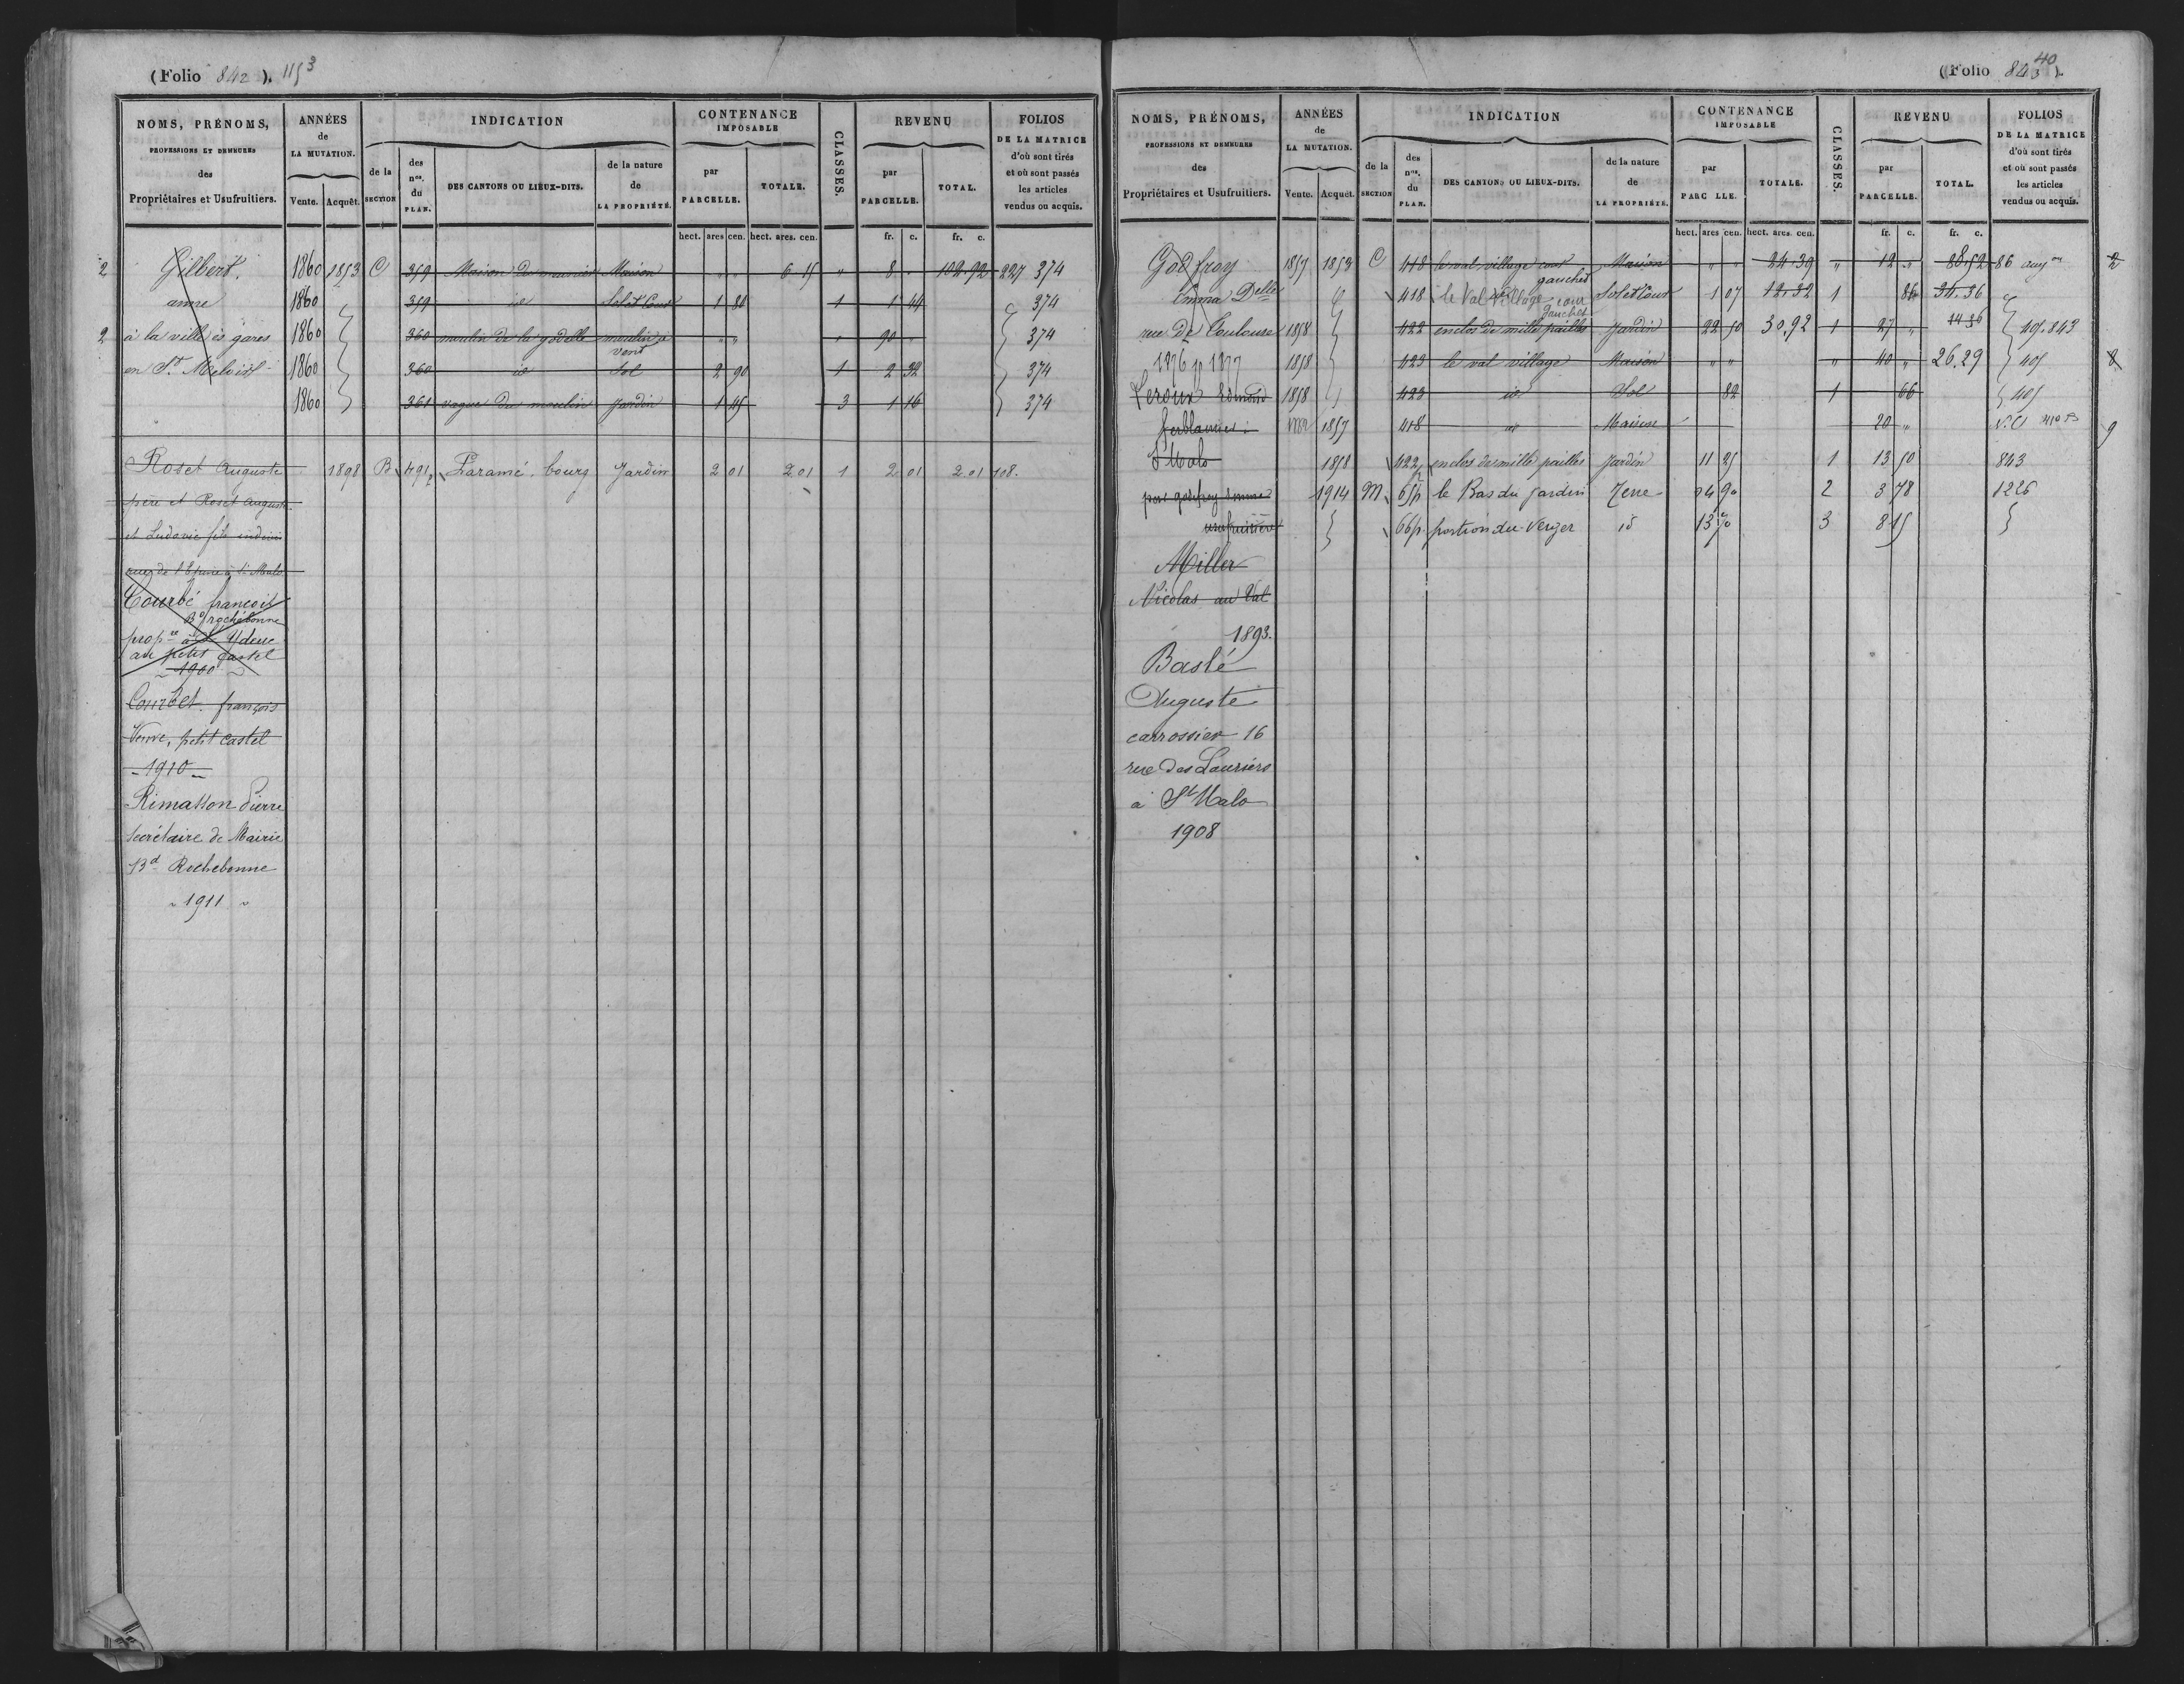 (Folio 842). 1153
NOMS, PRÉNOMS,
PROFESSIONS ET DEMEURES
des
Propriétaires et Usufruitiers.
ANNÉES
de
LA MUTATION.
Vente. Acquêt.
INDICATION
de la
SECTION
des
nos.
du
PLAN.
DES CANTONS OU LIEUX-DITS.
de la nature
de
LA PROPRIÉTÉ.
CONTENANCE
IMPOSABLE
par
PARCELLE.
TOTALE.
CLASSES.
REVENU
par
PARCELLE.
TOTAL.
FOLIOS
DE LA MATRICE
d'où sont tirés
et où sont passés
les articles
vendus ou acquis.
hect. ares cen. hect. ares. cen. fr. c. fr. c.
2 Gilbert. 1860 1853 C 359 Maison de meunier Maison " " 6 15 " 8 " 102.92 227 374
anne 1860 359 id Sol et Cour 1 80 1 1 44 374
2 à la ville ès gares 1860 360 moulin de la godelle moulin à vent " " " 90 " 374
en St. Meloir 1860 360 id Sol 2 90 1 2 32 374
1860 361 vague du moulin Jardin 1 45 3 1 16 374
Roset Auguste 1898 B 491p Paramé, bourg Jardin 2 01 2 01 1 2 01 2 01 108.
père et Roset Auguste
et Ludovic fils indivis
rue de l'Epine à St Malo
Courbé françois
Bd rochebonne
propre à
au petit Castel
1900
Courbet françois
Veuve, petit Castel
1910
Rimasson Pierre
Secrétaire de Mairie
Bd Rochebonne
" 1911 "
(Folio 843). 40
NOMS, PRÉNOMS,
PROFESSIONS ET DEMEURES
des
Propriétaires et Usufruitiers.
ANNÉES
de
LA MUTATION.
Vente. Acquêt.
INDICATION
de la
SECTION
des
nos.
du
PLAN.
DES CANTONS OU LIEUX-DITS.
de la nature
de
LA PROPRIÉTÉ.
CONTENANCE
IMPOSABLE
par
PARC LLE.
TOTALE.
CLASSES.
REVENU
par
PARCELLE.
TOTAL.
FOLIOS
DE LA MATRICE
d'où sont tirés
et où sont passés
les articles
vendus ou acquis.
hect. ares cen. hect. ares. cen. fr. c. fr. c.
Godfroy 1857 1853 C 418 le val village cour gauchet Maison " " 24.39 " 12 " 80.52 86 augon 2
Emma Delle 418 le Val Village cour gauchet Sol et Cour 1 07 12.32 1 86 34.36
rue de Toulouse 1858 422 enclos de mille pailles Jardin 22 50 30.92 1 27 " 44 36 405.843
1876 p 1877 1858 423 le val village Maison " " " 40 " 26.29 405 8
Leroux Edmond 1858 423 id Sol 82 1 66 405
ferblantier 1857 418 id Maison 20 " N.C. 9
St Malo 1858 422p enclos de mille pailles Jardin 11 25 1 13 50 843
pour godfroy Emma 1914 M 65p le Bas du Jardin Terre 24 90 2 3 78 1226
usufruitière 66p. portion du Verger id 13 70 3 8 15
Miller
Nicolas au Val
1893.
Baslé
Auguste
carrossier 16
rue des Lauriers
à St Malo
1908